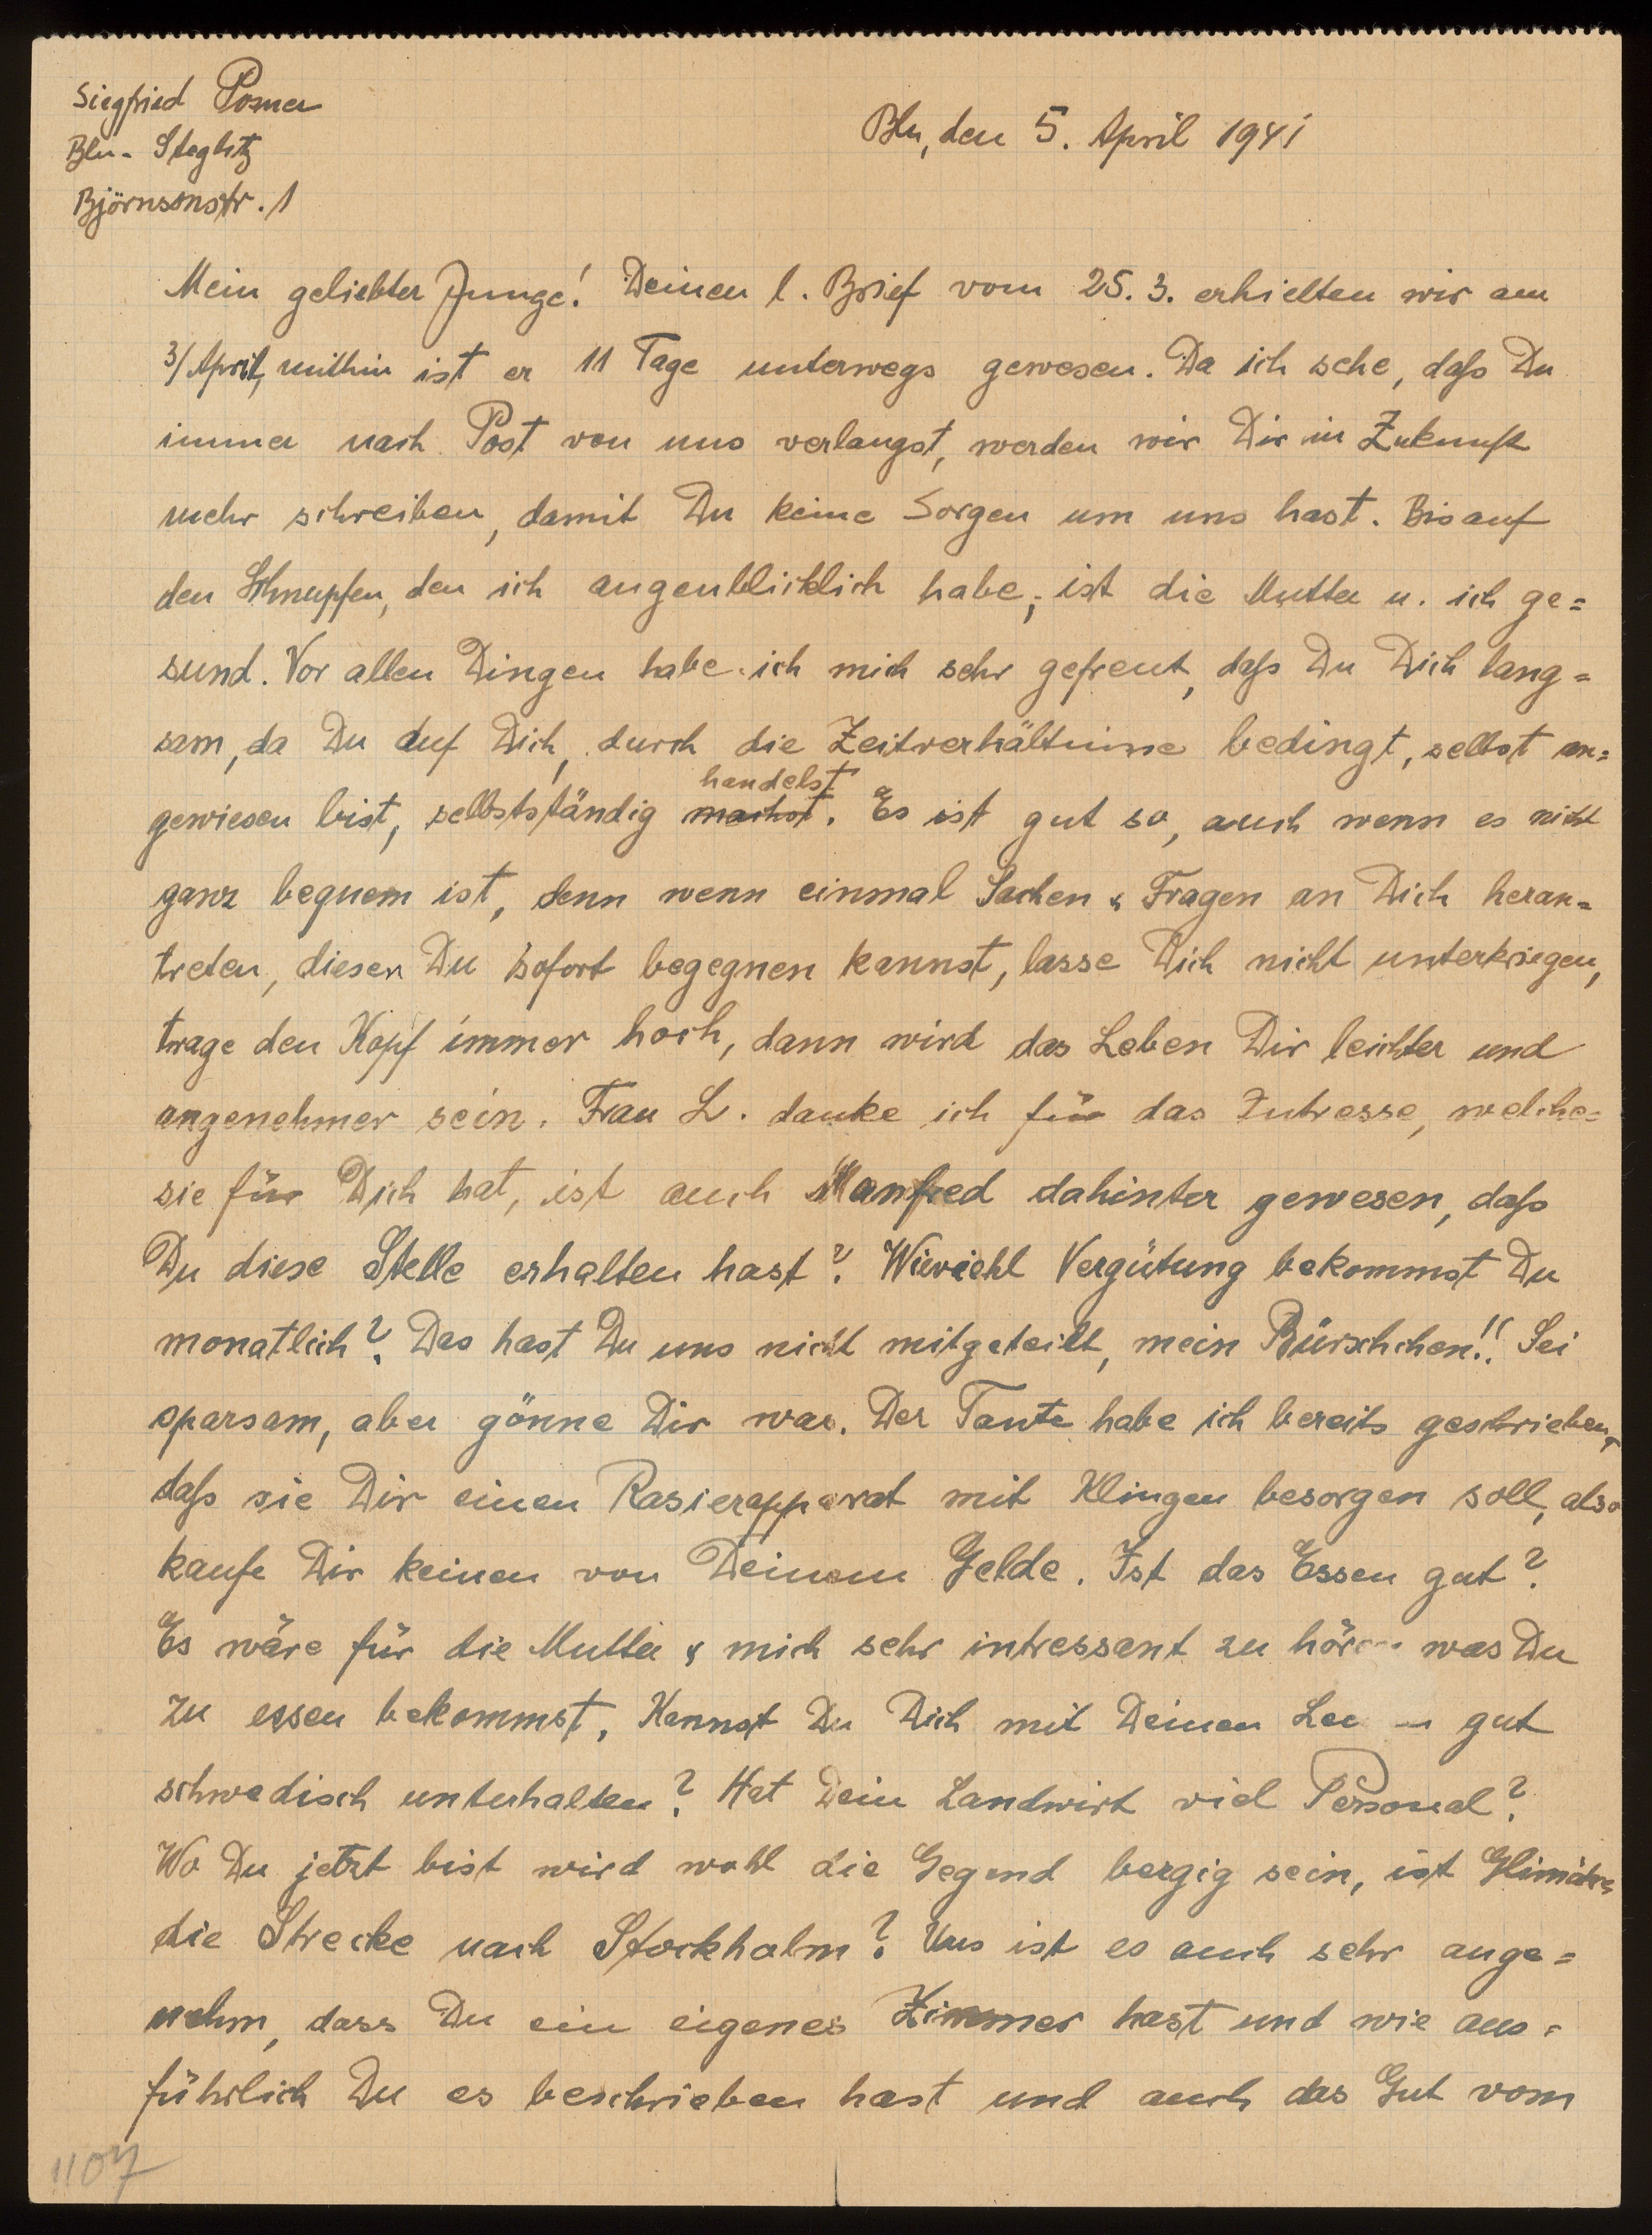 Siegfried Posner
Bln.- Steglitz
Björnsonstr. 1
Bln, den 5. April 1941
Mein geliebter Junge! Deinen l. Brief vom 25. 3. erhielten wir am
3/April, mithin ist er 11 Tage unterwegs gewesen. Da ich sehe, daß Du
immer nach Post von uns verlangst, werden wir Dir in Zukunft
mehr schreiben, damit Du keine Sorgen um uns hast. Bis auf
den Schnupfen, den ich augenblicklich habe, ist die Mutter u. ich ge=
sund. Vor allen Dingen habe ich mich sehr gefreut, daß Du Dich lang=
sam, da Du auf Dich, durch die Zeitverhältnisse bedingt, selbst an=
handelst
gewiesen bist, selbstständig machst. Es ist gut so, auch wenn es nicht
ganz bequem ist, denn wenn einmal Sachen & Fragen an Dich heran=
treten, diesen Du sofort begegnen kannst, lasse Dich nicht unterkriegen,
trage den Kopf immer hoch, dann wird das Leben Dir leichter und
angenehmer sein. Frau L. danke ich für das Intresse, welche=
sie für Dich hat, ist auch Manfred dahinter gewesen, daß
Du diese Stelle erhalten hast? Wieviehl Vergütung bekommst Du
monatlich? Das hast Du uns nicht mitgeteilt, mein Bürschchen!! Sei
sparsam, aber gönne Dir was. Der Tante habe ich bereits geschrieben,
daß sie Dir einen Rasierapparat mit Klingen besorgen soll, also
kaufe Dir keinen von Deinem Gelde. Ist das Essen gut?
Es wäre für die Mutter & mich sehr intressant zu hören was Du
zu essen bekommst. Kannst Du Dich mit Deinen gut
schwedisch unterhalten? Hat Dein Landwirt viel Personal?
Wo Du jetzt bist wird wohl die Gegend bergig sein, ist
die Strecke nach Stockholm? Uns ist es auch sehr ange=
nehm, dass Du ein eigenes Zimmer hast und wie aus=
führlich Du es beschrieben hast und auch das Gut vom
1107